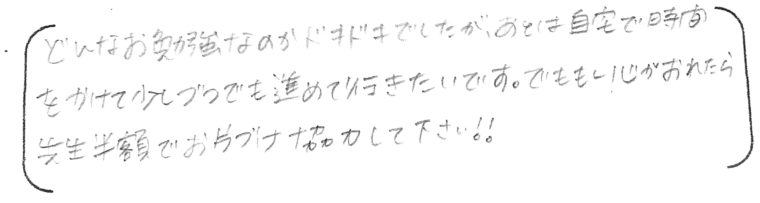 どんなお勉強なのかドキドキでしたが、あとは自宅で時間
をかけて少しづつでも進めて行きたいです。でももし心がおれたら
先生半額でお片づけ協力して下さい!!